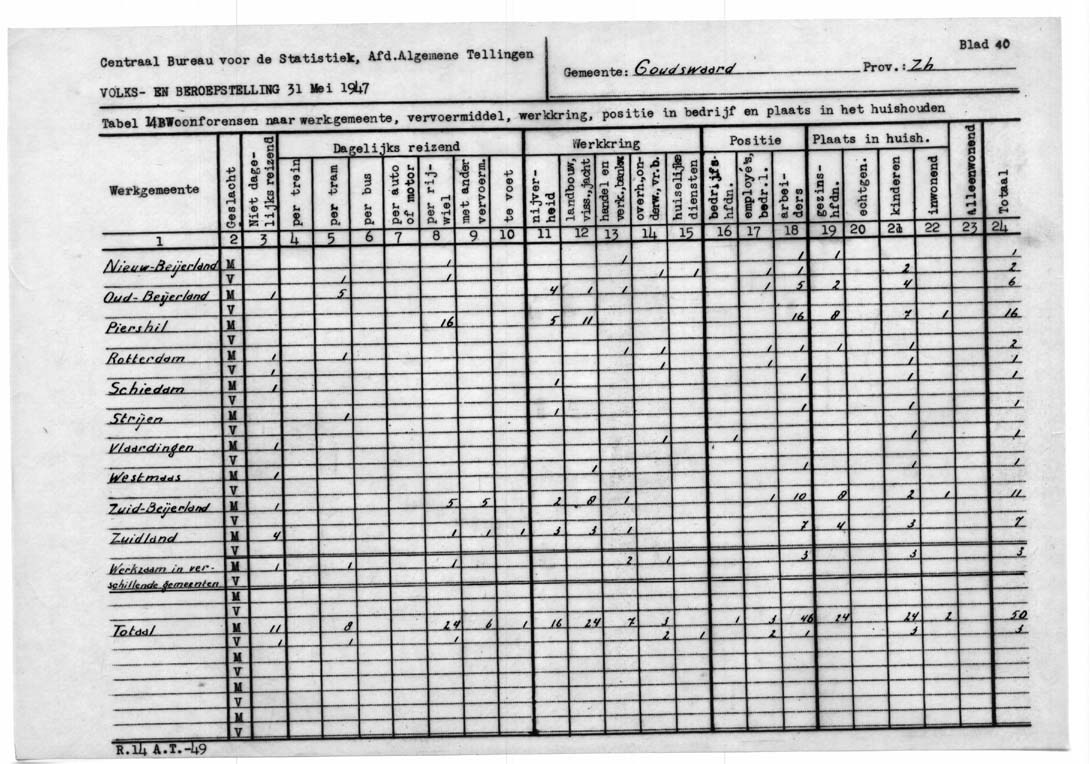 Centraal Bureau voor de Statistiek, Afd.Algemene Tellingen
Blad 40
Gemeente: Goudswaard Prov.: Zh
VOLKS- EN BEROEPSTELLING 31 Mei 1947
Tabel 14B Woonforensen naar werkgemeente, vervoermiddel, werkkring, positie in bedrijf en plaats in het huishouden
Werkgemeente | Geslacht | Niet dage-lijks reizend | Dagelijks reizend | Werkkring | Positie | Plaats in huish. | Alleenwonend | Totaal
per trein | per tram | per bus | per auto of motor | per rij-wiel | met ander vervoerm. | te voet | nijver-heid | landbouw, viss., jacht | handel en verk., bankw | overh., on-derw., vr.b. | huiselijke diensten | bedrijfs-hfdn. | employé's, bedr.l. | arbei-ders | gezins-hfdn. | echtgen. | kinderen | inwonend
1 2 3 4 5 6 7 8 9 10 11 12 13 14 15 16 17 18 19 20 21 22 23 24
Nieuw-Beijerland M 1 1 1 1 1
V 1 1 1 1 1 1 2 2
Oud-Beijerland M 1 5 4 1 1 1 5 2 4 6
V
Piershil M 16 5 11 16 8 7 1 16
V
Rotterdam M 1 1 1 1 1 1 1 1 2
V 1 1 1 1 1
Schiedam M 1 1 1 1 1
V
Strijen M 1 1 1 1 1
V
Vlaardingen M 1 1 1 1 1
V
Westmaas M 1 1 1 1 1
V
Zuid-Beijerland M 1 5 5 2 8 1 1 10 8 2 1 11
V
Zuidland M 4 1 1 1 3 3 1 7 4 3 7
V
Werkzaam in ver- M 1 1 1 2 1 3 3 3
schillende gemeenten V
M
V
Totaal M 11 8 24 6 1 16 24 7 3 1 3 46 24 24 2 50
V 1 1 1 2 1 2 1 3 3
M
V
M
V
M
V
R.14 A.T.-49